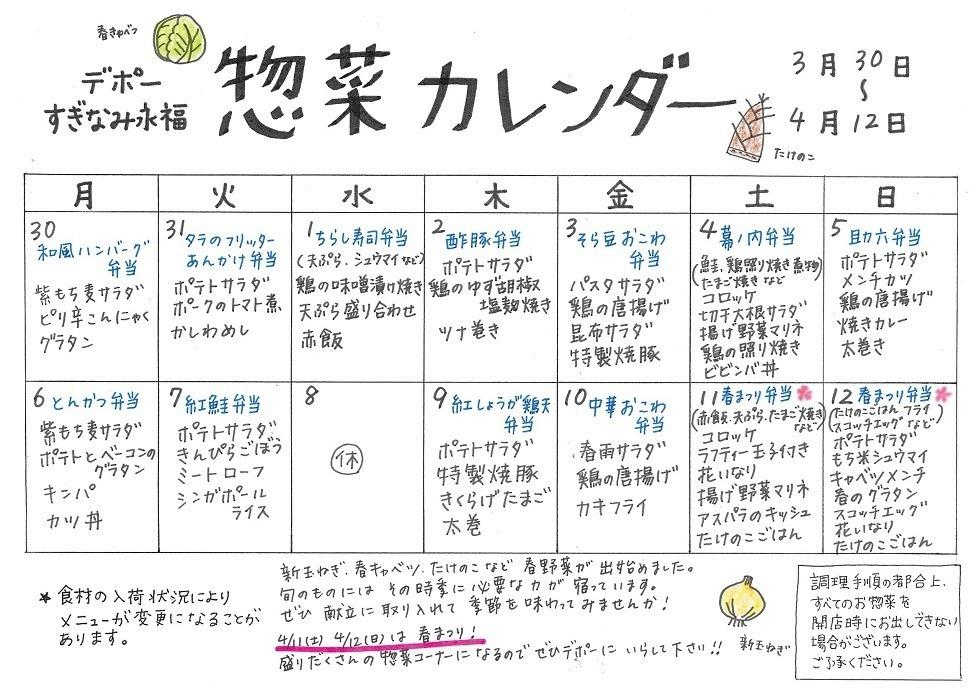 春きゃべつ
デポー
すぎなみ永福
惣菜カレンダー
3月30日
~
4月12日
たけのこ
月 火 水 木 金 土 日
30
和風ハンバーグ
弁当
紫もち麦サラダ
ピリ辛こんにゃく
グラタン
31
タラのフリッター
あんかけ弁当
ポテトサラダ
ポークのトマト煮
かしわめし
1 ちらし寿司弁当
(天ぷら、シュウマイなど)
鶏の味噌漬け焼き
天ぷら盛り合わせ
赤飯
2
酢豚弁当
ポテトサラダ
鶏のゆず胡椒
塩麹焼き
ツナ巻き
3 そら豆おこわ
弁当
パスタサラダ
鶏の唐揚げ
昆布サラダ
特製焼豚
4 幕ノ内弁当
(鮭、鶏照り焼き煮物)
たまご焼きなど
コロッケ
切干大根サラダ
揚げ野菜マリネ
鶏の照り焼き
ビビンバ丼
5 助六弁当
ポテトサラダ
メンチカツ
鶏の唐揚げ
焼きカレー
太巻き
6 とんかつ弁当
紫もち麦サラダ
ポテトとベーコンの
グラタン
キンパ
カツ丼
7 紅鮭弁当
ポテトサラダ
きんぴらごぼう
ミートローフ
シンガポール
ライス
8
休
9 紅しょうが鶏天
弁当
ポテトサラダ
特製焼豚
きくらげたまご
太巻
10 中華おこわ
弁当
春雨サラダ
鶏の唐揚げ
カキフライ
11 春まつり弁当
(赤飯、天ぷら、たまご焼き
など)
コロッケ
ラフティー玉子付き
花いなり
揚げ野菜マリネ
アスパラのキッシュ
たけのこごはん
12 春まつり弁当
(たけのこごはん フライ
スコッチエッグ など)
ポテトサラダ
もち米シュウマイ
キャベツメンチ
春のグラタン
スコッチエッグ
花いなり
たけのこごはん
★食材の入荷状況により
メニューが変更になることが
あります。
新玉ねぎ、春キャベツ、たけのこなど 春野菜が出始めました。
旬のものには その時季に必要な力が 宿っています。
ぜひ 献立に取り入れて 季節を味わってみませんか!
4/11(土) 4/12(日)は 春まつり!
盛りだくさんの惣菜コーナーになるのでぜひデポーに いらして下さい!!
新玉ねぎ
調理手順の都合上、
すべてのお惣菜を
開店時にお出しできない
場合がございます。
ご了承ください。